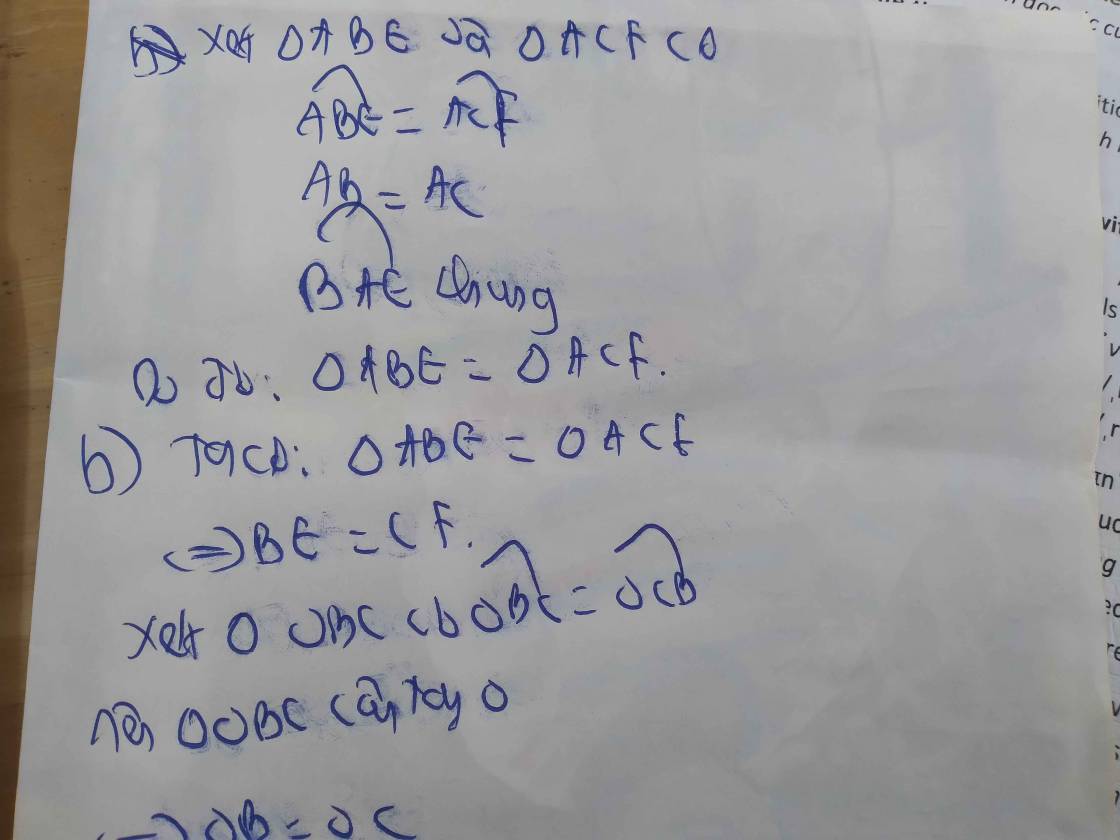 Xét Δ ABE và Δ ACF có
ABE = ACF
AB = AC
BAE chung
Do đó: Δ ABE = Δ ACF.
b) Ta có: Δ ABE = Δ ACF
(=) BE = CF.
Xét Δ OBC có OBC = OCB
nên Δ OBC cân tại O
=) OB = OC